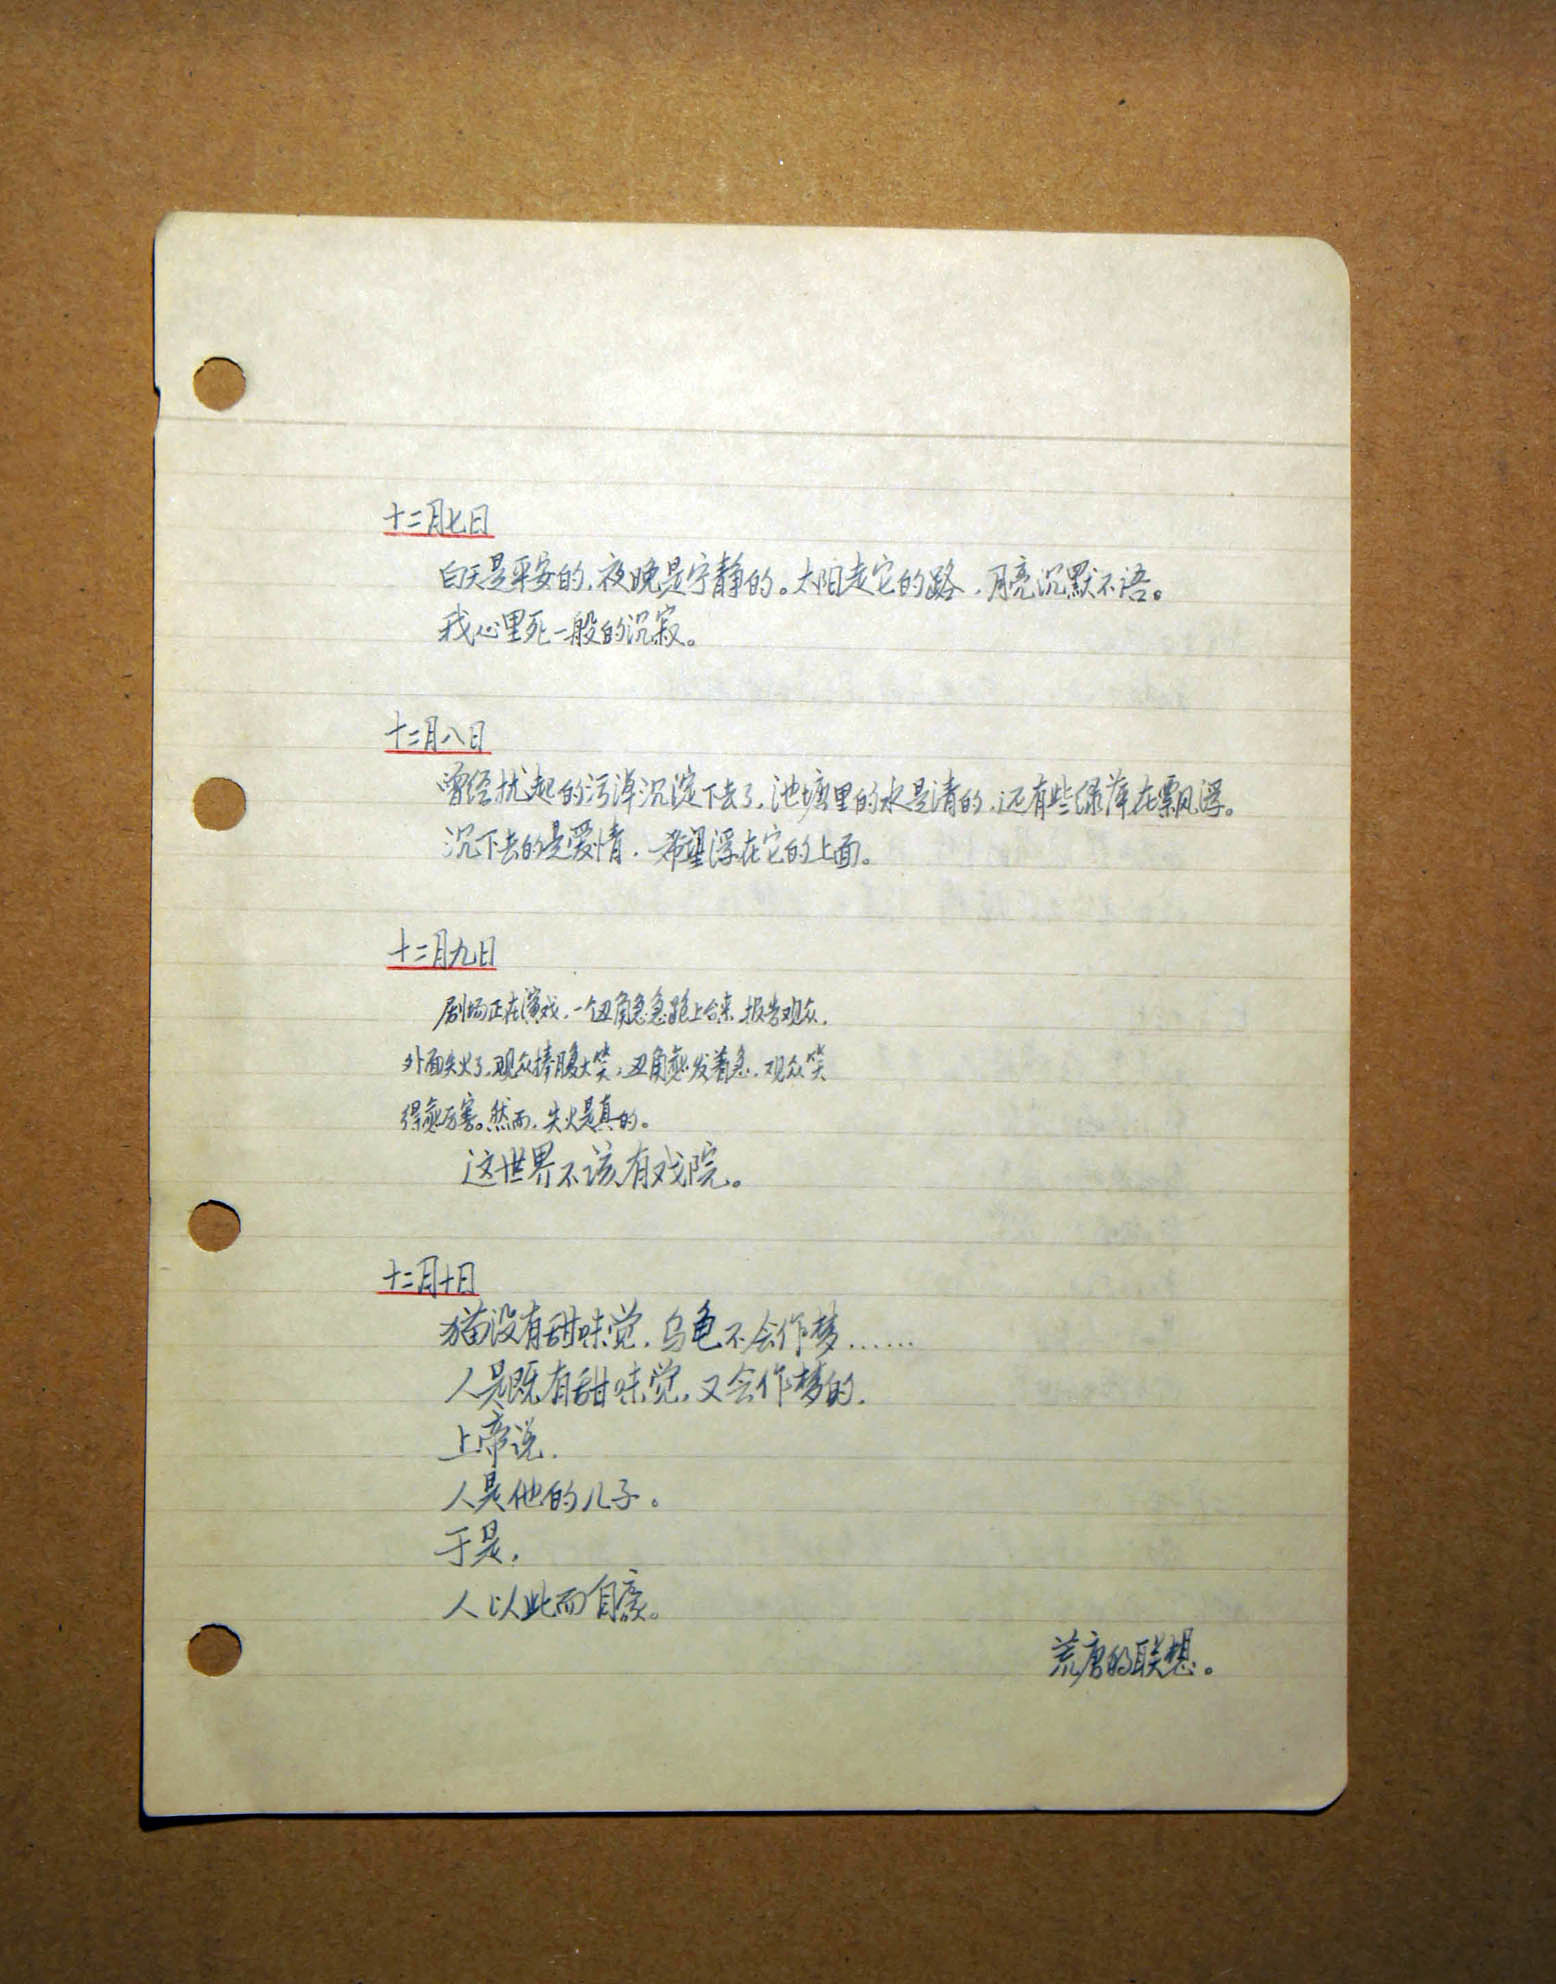 十二月七日
白天是平安的,夜晚是宁静的。太阳走它的路,月亮沉默不语。
我心里死一般的沉寂。
十二月八日
曾经扰起的污淖沉淀下去了,池塘里的水是清的,还有些绿萍在飘浮。
沉下去的是爱情,希望浮在它的上面。
十二月九日
剧场正在演戏,一个丑角急急跑上台来,报告观众,
外面失火了,观众捧腹大笑,丑角愈发着急,观众笑
得愈厉害。然而,失火是真的。
这世界不该有戏院。
十二月十日
猫没有甜味觉,乌龟不会作梦……
人是既有甜味觉,又会作梦的.
上帝说,
人是他的儿子。
于是,
人以此而自豪。
荒唐的联想。